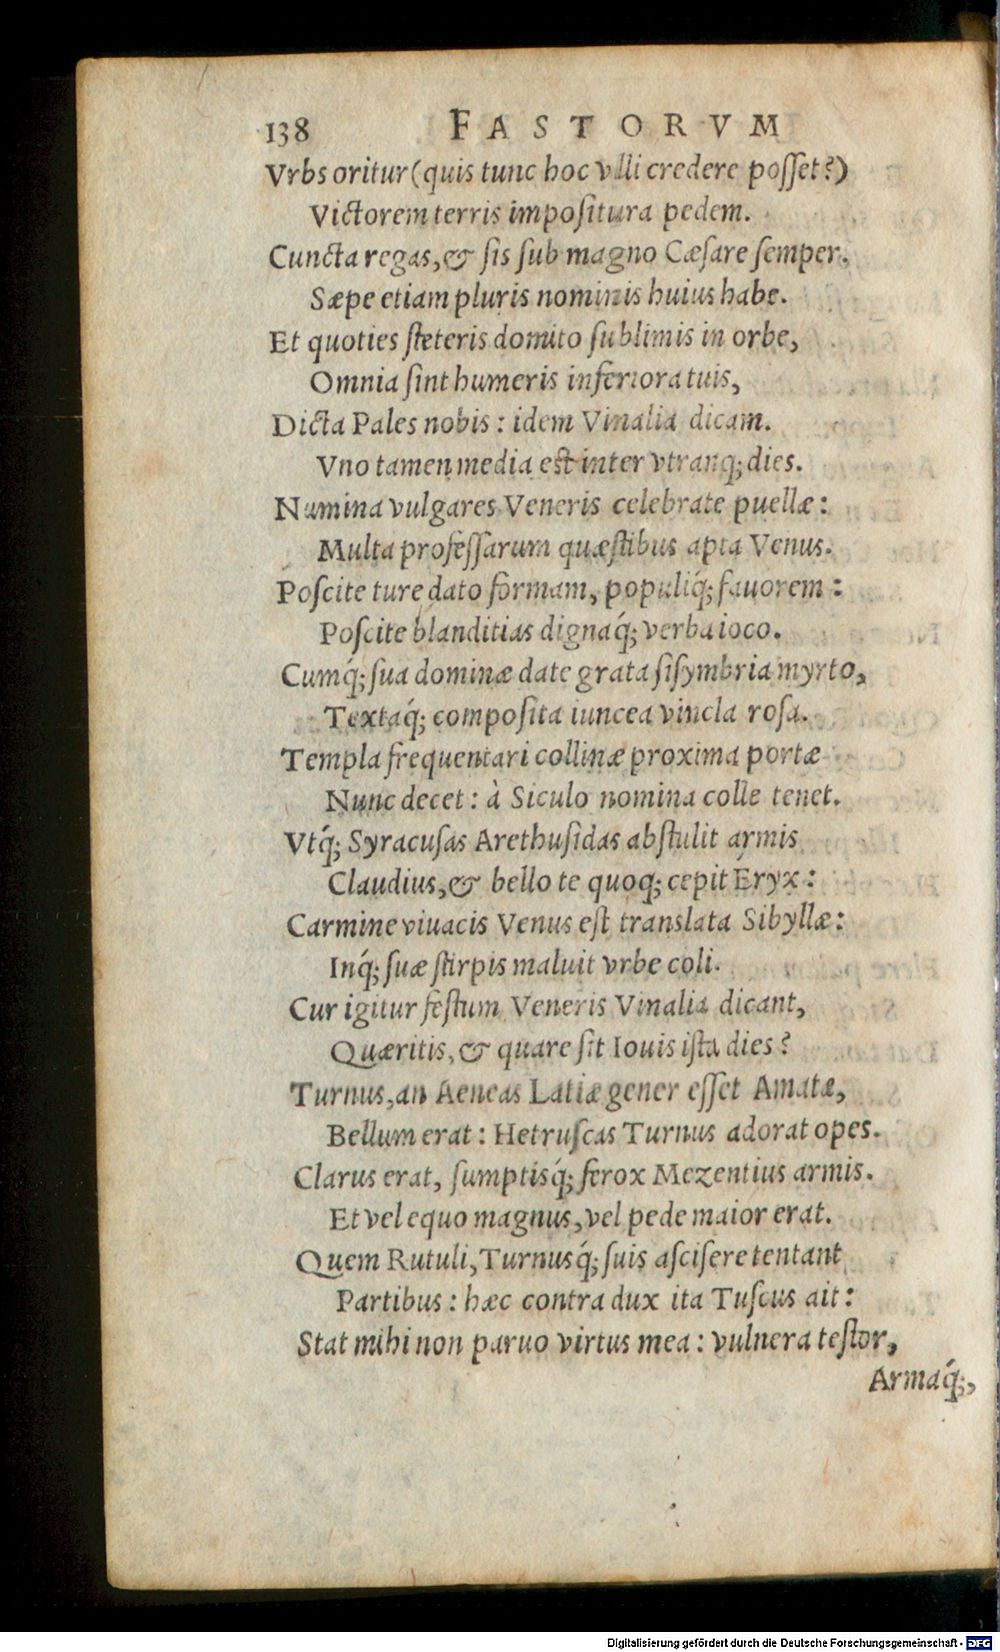 138 FASTORVM
Vrbs oritur (quis tunc hoc vlli credere posset?)
Victorem terris impositura pedem.
Cuncta regas, & sis sub magno Cæsare semper.
Sæpe etiam pluris nominis huius habe.
Et quoties steteris domito sublimis in orbe,
Omnia sint humeris inferiora tuis,
Dicta Pales nobis: idem Vinalia dicam.
Vno tamen media est inter vtranq; dies.
Numina vulgares Veneris celebrate puellæ:
Multa professarum quæstibus apta Venus.
Poscite ture dato formam, populiq́; fauorem:
Poscite blanditias dignaq́; verba ioco.
Cumq́; sua dominæ date grata sisymbria myrto,
Textaq́; composita iuncea vincla rosa.
Templa frequentari collinæ proxima portæ
Nunc decet: à Siculo nomina colle tenet.
Vtq́; Syracusas Arethusidas abstulit armis
Claudius, & bello te quoq; cepit Eryx:
Carmine viuacis Venus est translata Sibyllæ:
Inq́; suæ stirpis maluit vrbe coli.
Cur igitur festum Veneris Vinalia dicant,
Quæritis, & quare sit Iouis ista dies?
Turnus, an Aeneas Latiæ gener esset Amatæ,
Bellum erat: Hetruscas Turnus adorat opes.
Clarus erat, sumptisq́; ferox Mezentius armis.
Et vel equo magnus, vel pede maior erat.
Quem Rutuli, Turnusq́; suis ascisere tentant
Partibus: hæc contra dux ita Tuscus ait:
Stat mihi non paruo virtus mea: vulnera testor,
Armaq́;,
Digitalisierung gefördert durch die Deutsche Forschungsgemeinschaft - DFG